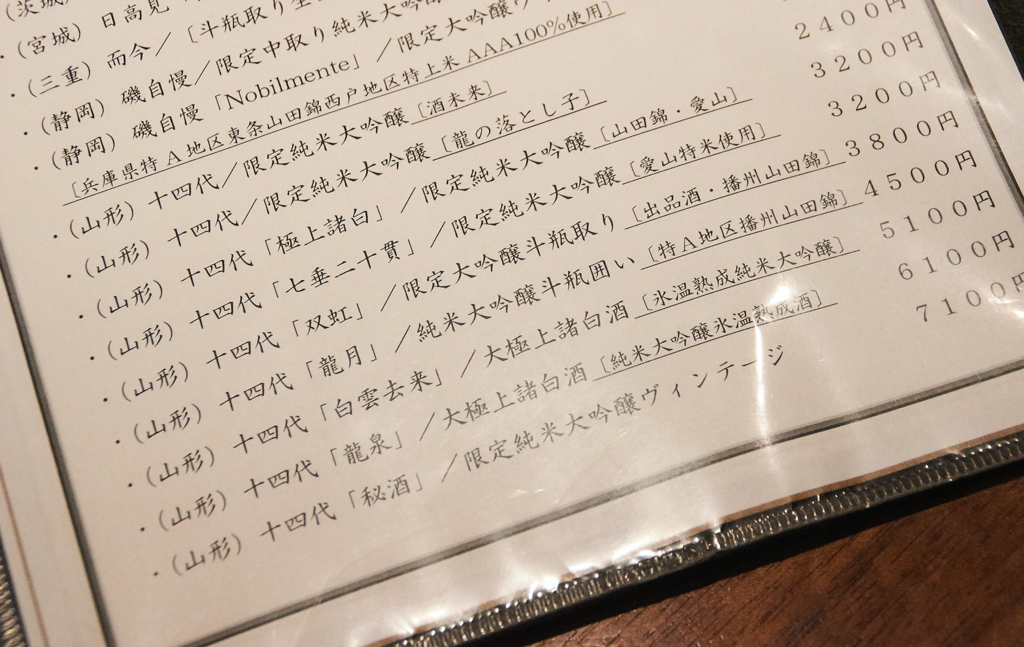 (茨城)
・(宮城) 日高見
・(三重) 而今/［斗瓶取り
・(静岡) 磯自慢/限定中取り純米大吟醸
・(静岡) 磯自慢「Nobilmente」/限定大吟醸ヴ
［兵庫県特A地区東条山田錦西戸地区特上米AAA100%使用］
・(山形) 十四代/限定純米大吟醸［酒未来］
・(山形) 十四代/限定純米大吟醸［龍の落とし子］ 2400円
・(山形) 十四代「極上諸白」/限定純米大吟醸［山田錦・愛山］ 3200円
・(山形) 十四代「七垂二十貫」/限定純米大吟醸［愛山特米使用］ 3200円
・(山形) 十四代「双虹」/限定大吟醸斗瓶取り［出品酒・播州山田錦］ 3800円
・(山形) 十四代「龍月」/純米大吟醸斗瓶囲い［特A地区播州山田錦］ 4500円
・(山形) 十四代「白雲去来」/大極上諸白酒［氷温熟成純米大吟醸］ 5100円
・(山形) 十四代「龍泉」/大極上諸白酒［純米大吟醸氷温熟成酒］ 6100円
・(山形) 十四代「秘酒」/限定純米大吟醸ヴィンテージ 7100円